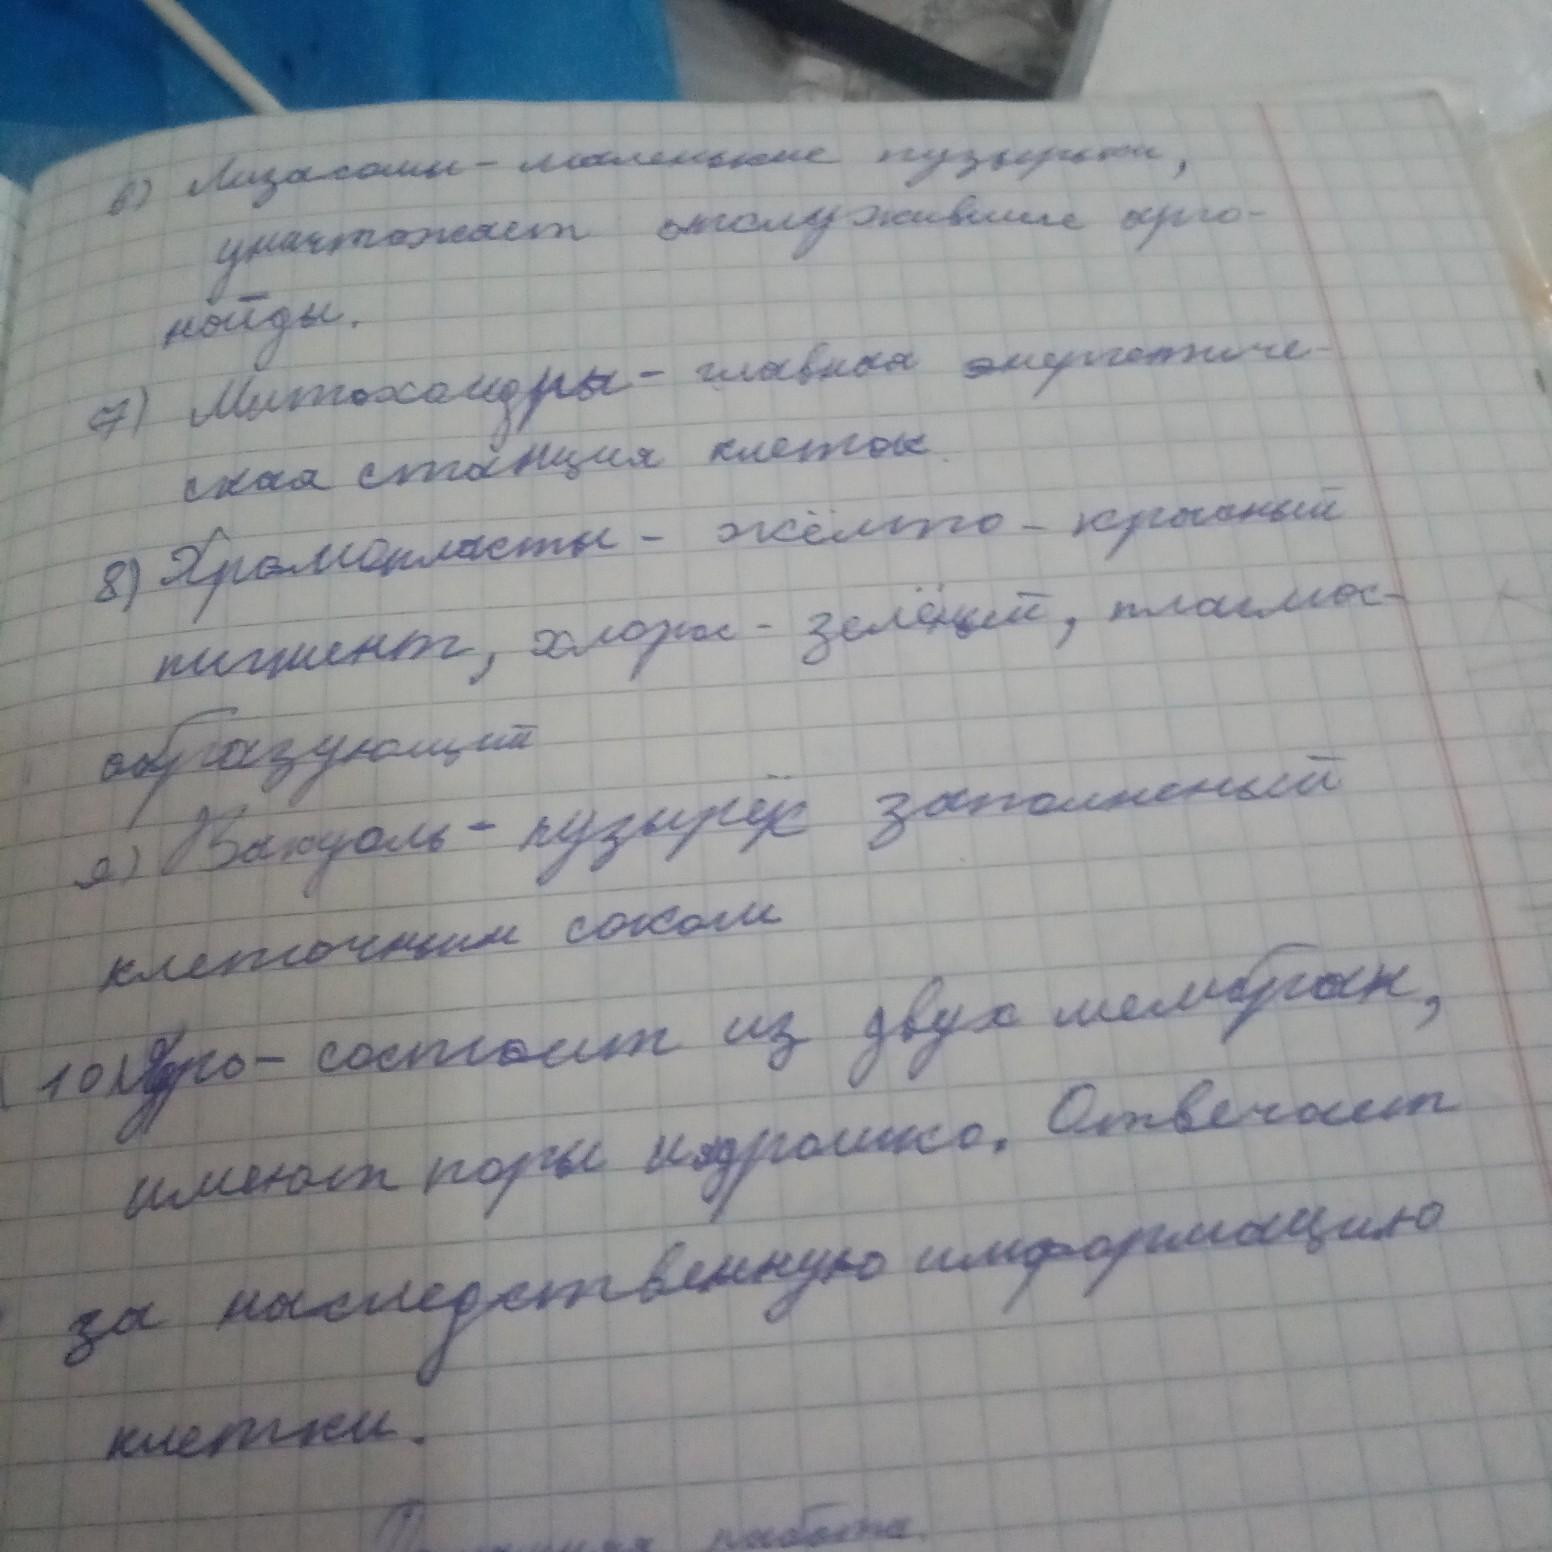 6) Лизасомы - маленькие пузырьки,
уничтожает отслужившие орга-
нойды.
7) Митохондры - главная энергетиче-
ская станция клеток.
8) Хромопласты - жёлто - красный
пигмент, хлоро - зелёный, плагмос-
образующий
9) Вакуоль - пузырёк заполненый
клеточным соком
10) Ядро - состоит из двух мембран,
имеют поры и ядрошко. Отвечает
за наследственную информацию
клетки.
Домашняя работа.